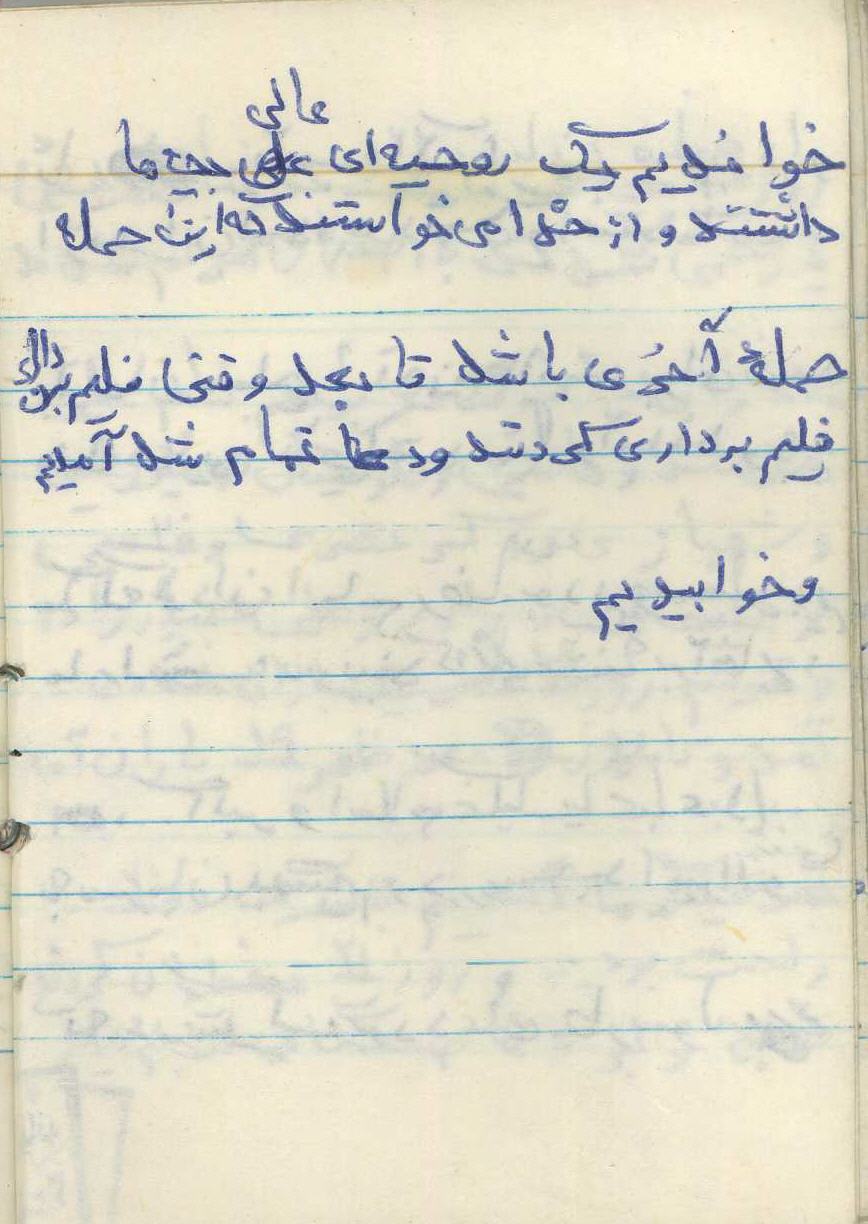 عالی
خواندیم یک روحیه‌ای عالی بچه ما
داشتند و از خدا می خواستند که این حمله
حمله آخری باشد تا بعد وقتی فیلم برداری
فیلم برداری کردند و دعا تمام شد آمدیم
و خوابیدیم